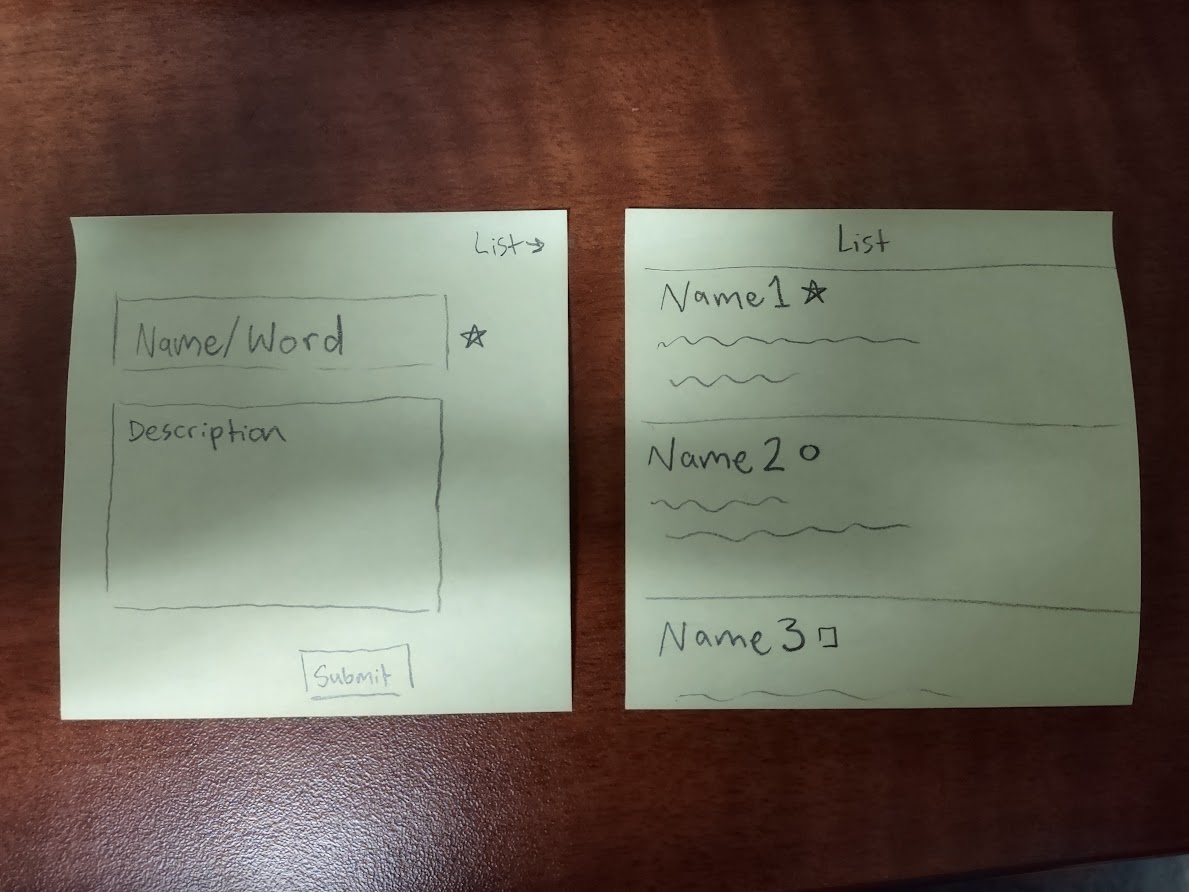 List→
Name/Word
Description
Submit
List
Name1
Name2
Name3